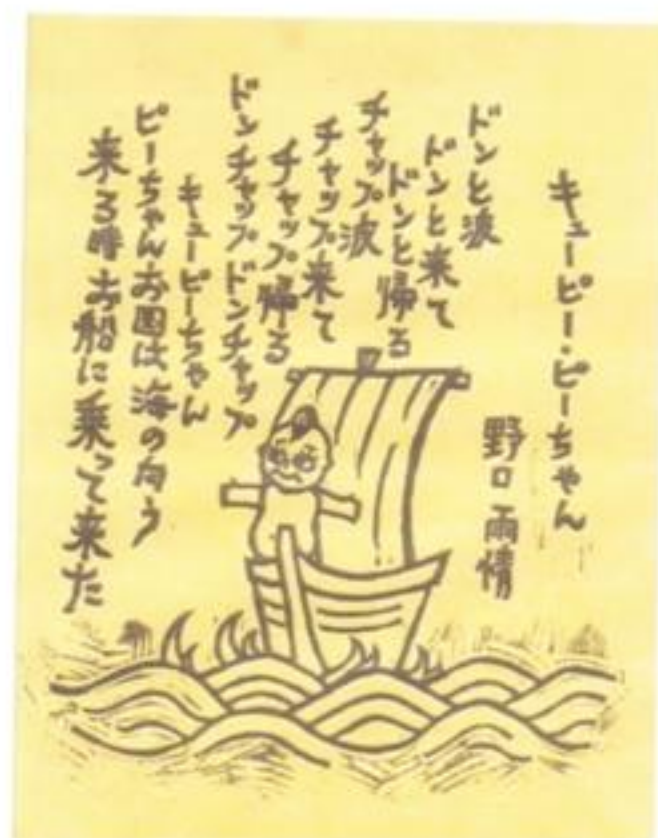 キューピー・ピーちゃん
野口雨情
ドンと波
ドンと来て
ドンと帰る
チャップ波
チャップ来て
チャップ帰る
ドンチャップドンチャップ
キューピーちゃん
ピーちゃんお国は海の向う
来る時お船に乗って来た